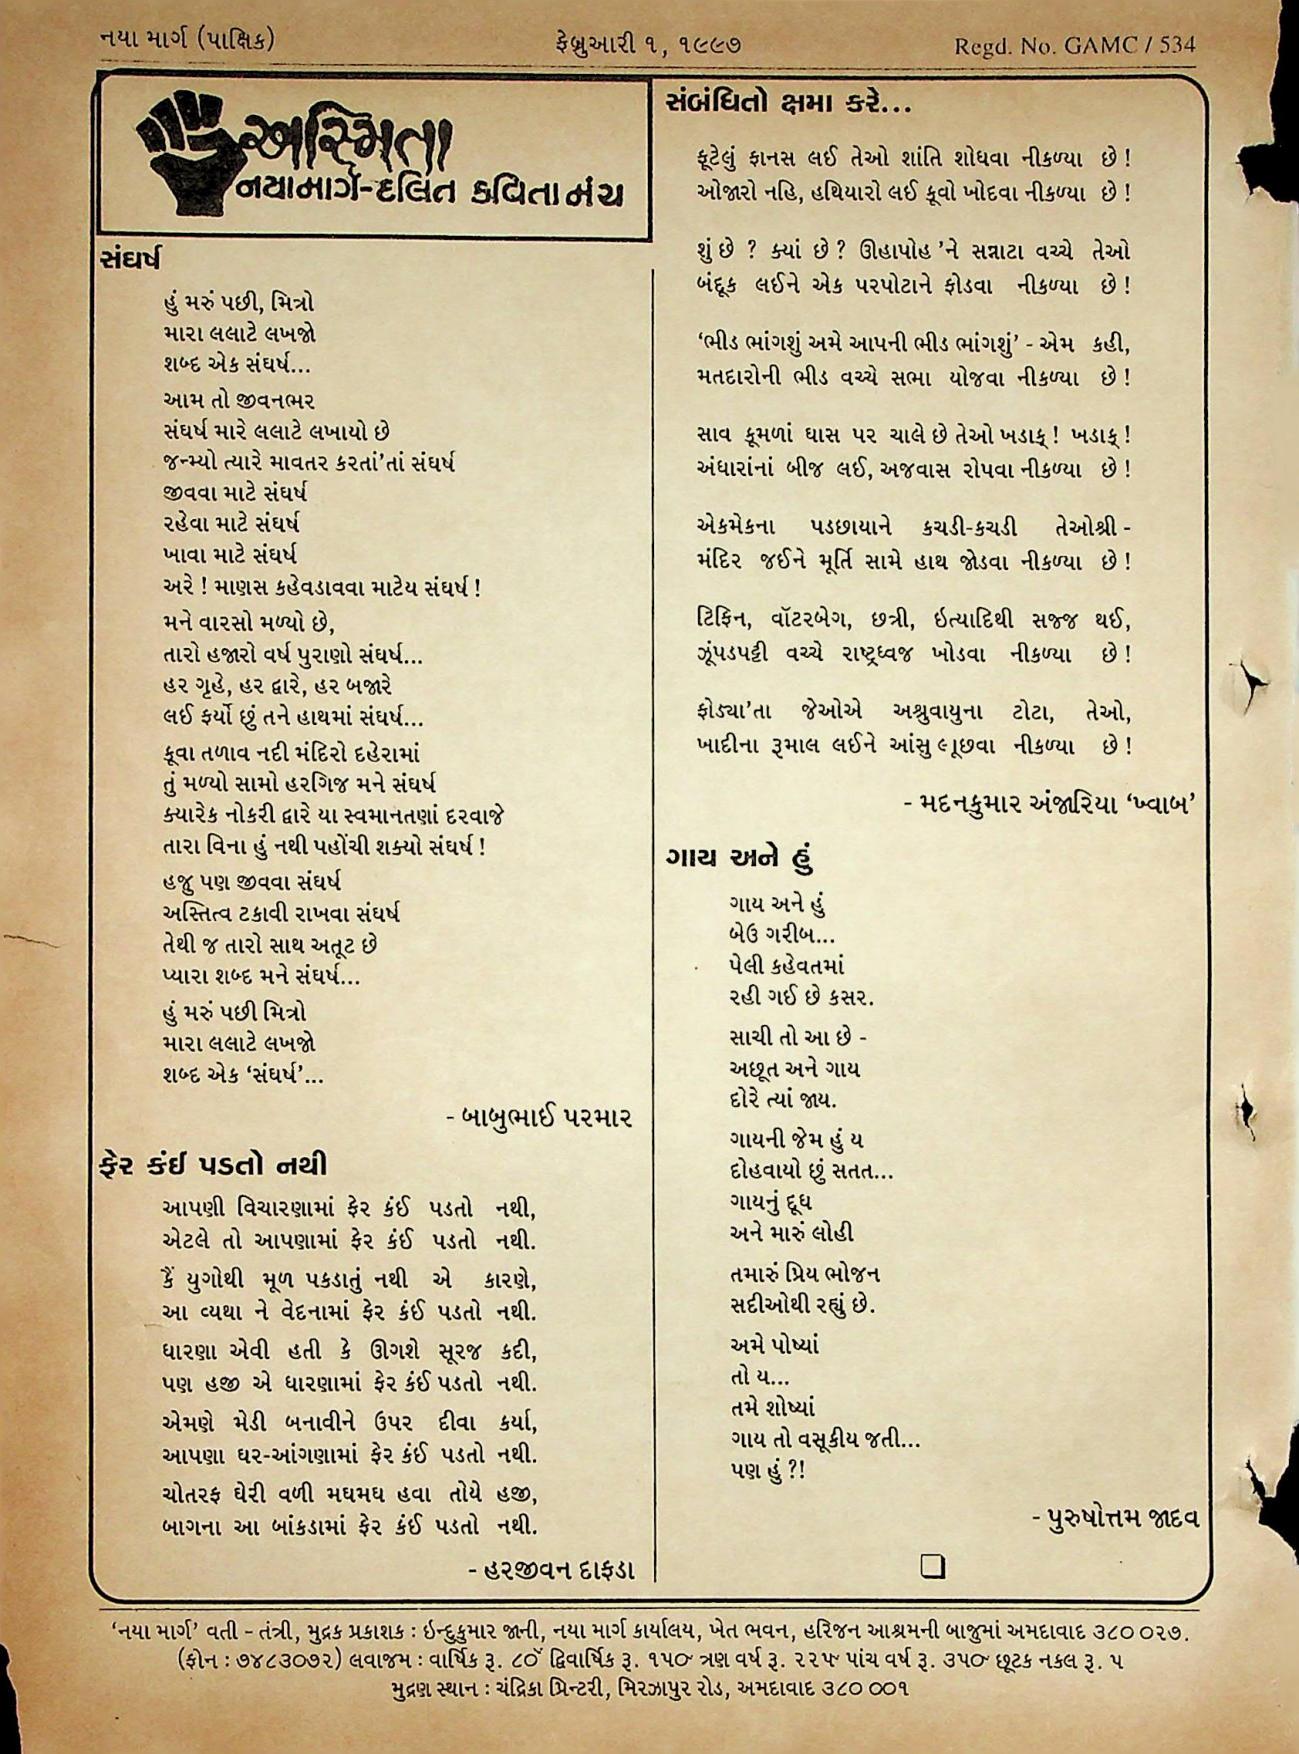 નયા માર્ગ (પાક્ષિક)
ફેબ્રુઆરી ૧, ૧૯૯૭
Regd. No. GAMC / 534
અસ્મિતા
નયામાર્ગ-દલિત કવિતા મંચ
સંઘર્ષ
હું મરું પછી, મિત્રો
મારા લલાટે લખજો
શબ્દ એક સંઘર્ષ...
આમ તો જીવનભર
સંઘર્ષ મારે લલાટે લખાયો છે
જન્મ્યો ત્યારે માવતર કરતાં'તાં સંઘર્ષ
જીવવા માટે સંઘર્ષ
રહેવા માટે સંઘર્ષ
ખાવા માટે સંઘર્ષ
અરે ! માણસ કહેવડાવવા માટેય સંઘર્ષ !
મને વારસો મળ્યો છે,
તારો હજારો વર્ષ પુરાણો સંઘર્ષ...
હર ગૃહે, હર દ્વારે, હર બજારે
લઈ ફર્યો છું તને હાથમાં સંઘર્ષ...
કૂવા તળાવ નદી મંદિરો દહેરામાં
તું મળ્યો સામો હરગિજ મને સંઘર્ષ
ક્યારેક નોકરી દ્વારે યા સ્વમાનતણાં દરવાજે
તારા વિના હું નથી પહોંચી શક્યો સંઘર્ષ !
હજુ પણ જીવવા સંઘર્ષ
અસ્તિત્વ ટકાવી રાખવા સંઘર્ષ
તેથી જ તારો સાથ અતૂટ છે
પ્યારા શબ્દ મને સંઘર્ષ...
હું મરું પછી મિત્રો
મારા લલાટે લખજો
શબ્દ એક ‘સંઘર્ષ’...
- બાબુભાઈ પરમાર
ફેર કંઈ પડતો નથી
આપણી વિચારણામાં ફેર કંઈ પડતો નથી,
એટલે તો આપણામાં ફેર કંઈ પડતો નથી.
કૈં યુગોથી મૂળ પકડાતું નથી એ કારણે,
આ વ્યથા ને વેદનામાં ફેર કંઈ પડતો નથી.
ધારણા એવી હતી કે ઊગશે સૂરજ કદી,
પણ હજી એ ધારણામાં ફેર કંઈ પડતો નથી.
એમણે મેડી બનાવીને ઉપર દીવા કર્યા,
આપણા ઘર-આંગણામાં ફેર કંઈ પડતો નથી.
ચોતરફ ઘેરી વળી મઘમઘ હવા તોયે હજી,
બાગના આ બાંકડામાં ફેર કંઈ પડતો નથી.
- હરજીવન દાફડા
સંબંધિતો ક્ષમા કરે...
ફૂટેલું ફાનસ લઈ તેઓ શાંતિ શોધવા નીકળ્યા છે !
ઓજારો નહિ, હથિયારો લઈ કૂવો ખોદવા નીકળ્યા છે !
શું છે ? ક્યાં છે ? ઊહાપોહ 'ને સન્નાટા વચ્ચે તેઓ
બંદૂક લઈને એક પરપોટાને ફોડવા નીકળ્યા છે !
‘ભીડ ભાંગશું અમે આપની ભીડ ભાંગશું’ - એમ કહી,
મતદારોની ભીડ વચ્ચે સભા યોજવા નીકળ્યા છે !
સાવ કૂમળાં ઘાસ પર ચાલે છે તેઓ ખડાક્ ! ખડાક્ !
અંધારાંનાં બીજ લઈ, અજવાસ રોપવા નીકળ્યા છે !
એકમેકના પડછાયાને કચડી-કચડી તેઓશ્રી -
મંદિર જઈને મૂર્તિ સામે હાથ જોડવા નીકળ્યા છે !
ટિફિન, વૉટરબેગ, છત્રી, ઇત્યાદિથી સજ્જ થઈ,
ઝૂંપડપટ્ટી વચ્ચે રાષ્ટ્રધ્વજ ખોડવા નીકળ્યા છે !
ફોડ્યા'તા જેઓએ અશ્રુવાયુના ટોટા, તેઓ,
ખાદીના રૂમાલ લઈને આંસુ લૂછવા નીકળ્યા છે !
- મદનકુમાર અંજારિયા ‘ખ્વાબ’
ગાય અને હું
ગાય અને હું
બેઉ ગરીબ...
પેલી કહેવતમાં
રહી ગઈ છે કસર.
સાચી તો આ છે -
અછૂત અને ગાય
દોરે ત્યાં જાય.
ગાયની જેમ હું ય
દોહવાયો છું સતત...
ગાયનું દૂધ
અને મારું લોહી
તમારું પ્રિય ભોજન
સદીઓથી રહ્યું છે.
અમે પોષ્યાં
તો ય...
તમે શોષ્યાં
ગાય તો વસૂકીય જતી...
પણ હું ?!
- પુરુષોત્તમ જાદવ
‘નયા માર્ગ’ વતી - તંત્રી, મુદ્રક પ્રકાશક : ઇન્દુકુમાર જાની, નયા માર્ગ કાર્યાલય, ખેત ભવન, હરિજન આશ્રમની બાજુમાં અમદાવાદ ૩૮૦ ૦૨૭.
(ફોન : ૭૪૮૩૦૭૨) લવાજમ : વાર્ષિક રૂ. ૮૦ દ્વિવાર્ષિક રૂ. ૧૫૦ ત્રણ વર્ષ રૂ. ૨૨૫ પાંચ વર્ષ રૂ. ૩૫૦ છૂટક નકલ રૂ. ૫
મુદ્રણ સ્થાન : ચંદ્રિકા પ્રિન્ટરી, મિરઝાપુર રોડ, અમદાવાદ ૩૮૦ ૦૦૧